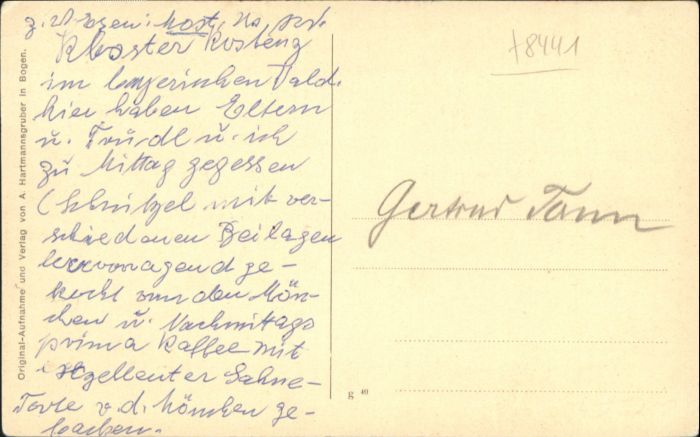 Kloster Kostenz
im bayerischen Wald.
hier haben Eltern
u. Trudl u. ich
zu Mittag gegessen
(Schnitzel mit ver-
schiedenen Beilagen
hervorragend ge-
kocht von den Mön-
chen u. Nachmittags
prima Kaffee mit
exzellenter Sahne-
Torte v. d. Mönchen ge-
backen.
Original-Aufnahme und Verlag von A. Hartmannsgruber in Bogen.
78441
Gertrud Tonn
g 40